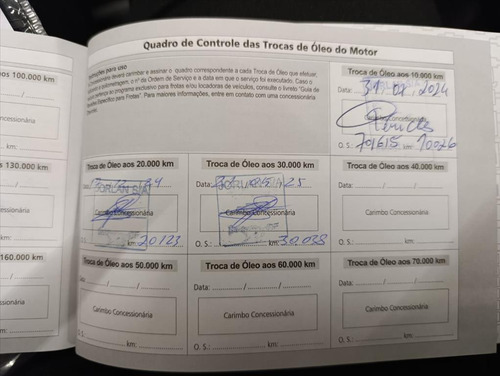 Quadro de Controle das Trocas de Óleo do Motor
Instruções para uso
deverá carimbar e assinar o quadro correspondente a cada Troca de Óleo que efetuar,
o nº de Ordem de Serviço e a data em que o serviço foi executado. Caso o
ao programa exclusivo para frotas e/ou locadoras de veículos, consulte o livreto "Guia de
Específico para Frotas". Para maiores informações, entre em contato com uma concessionária
Troca de Óleo aos 10.000 km
Data: 31 2024
O. S.: 701615 km: 10026
aos 100.000 km
Concessionária
km:
130.000 km
km:
160.000 km
km:
Troca de Óleo aos 20.000 km
Carimbo Concessionária
km: 20123
Troca de Óleo aos 30.000 km
Data: 25
Carimbo Concessionária
O. S.: km: 30.038
Troca de Óleo aos 40.000 km
Data: / /
Carimbo Concessionária
O. S.: km:
Troca de Óleo aos 50.000 km
Data: / /
Carimbo Concessionária
km:
Troca de Óleo aos 60.000 km
Data: / /
Carimbo Concessionária
O. S.: km:
Troca de Óleo aos 70.000 km
Data: / /
Carimbo Concessionária
O. S.: km: